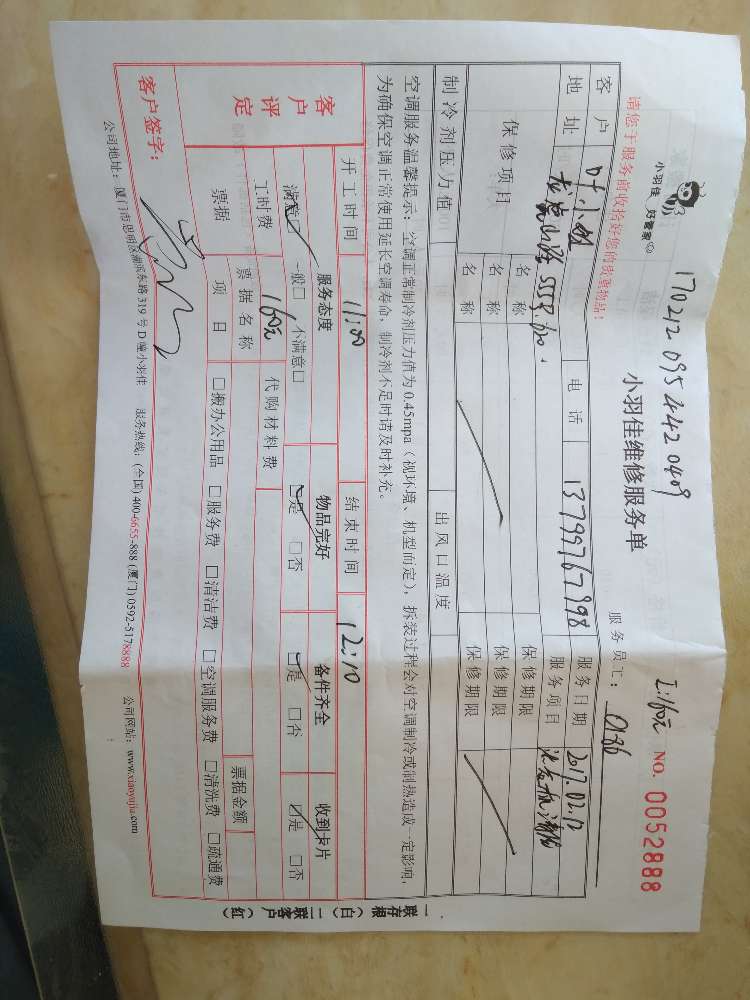 小羽佳 好管家
170212 095 442 0409
NO. 0052888
小羽佳维修服务单
服务员工：0136
请您于服务前收拾好您的贵重物品！
客户 小姐 电话 13799767998 服务日期 2017.02.12
地址 服务项目
保修项目 名称 保修期限
名称 保修期限
名称 保修期限
制冷剂压力值 出风口温度
空调服务温馨提示：空调正常制冷剂压力值为0.45mpa（视环境、机型而定），拆装过程会对空调制冷或制热造成一定影响，
为确保空调正常使用延长空调寿命，制冷剂不足时请及时补充。
开工时间 11:00 结束时间 12:10
客户评定 服务态度 物品完好 备件齐全 收到卡片
满意□ 一般□ 不满意□ □是 □否 □是 □否 □是 □否
工时费 160元 代购材料费
票据 票据名称 票据金额
项目 □搬办公用品 □服务费 □清洁费 □空调服务费 □清洗费 □疏通费
客户签字：
公司地址：厦门市思明区湖滨东路319号D幢小羽佳 服务热线：(全国) 400-6655-888 (厦门) 0592-5178888 公司网站：www.xiaoyujia.com
一联存根（白） 二联客户（红）